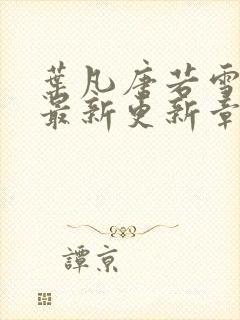 葉凡唐若雪
最新更新章
譚京